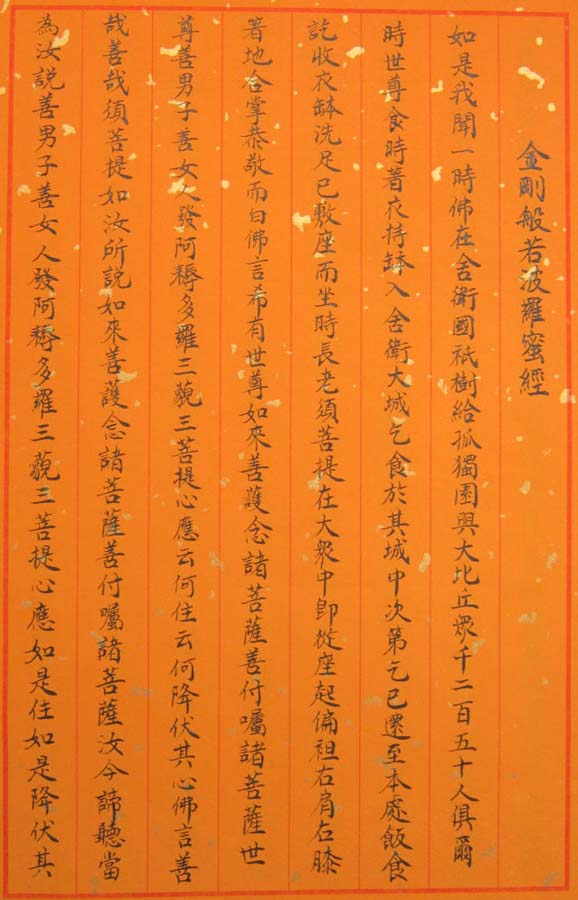 金剛般若波羅蜜經
如是我聞一時佛在舍衛國祇樹給孤獨園與大比丘眾千二百五十人俱爾
時世尊食時著衣持缽入舍衛大城乞食於其城中次第乞已還至本處飯食
訖收衣缽洗足已敷座而坐時長老須菩提在大眾中即從座起偏袒右肩右膝
著地合掌恭敬而白佛言希有世尊如來善護念諸菩薩善付囑諸菩薩世
尊善男子善女人發阿耨多羅三藐三菩提心應云何住云何降伏其心佛言善
哉善哉須菩提如汝所說如來善護念諸菩薩善付囑諸菩薩汝今諦聽當
為汝說善男子善女人發阿耨多羅三藐三菩提心應如是住如是降伏其